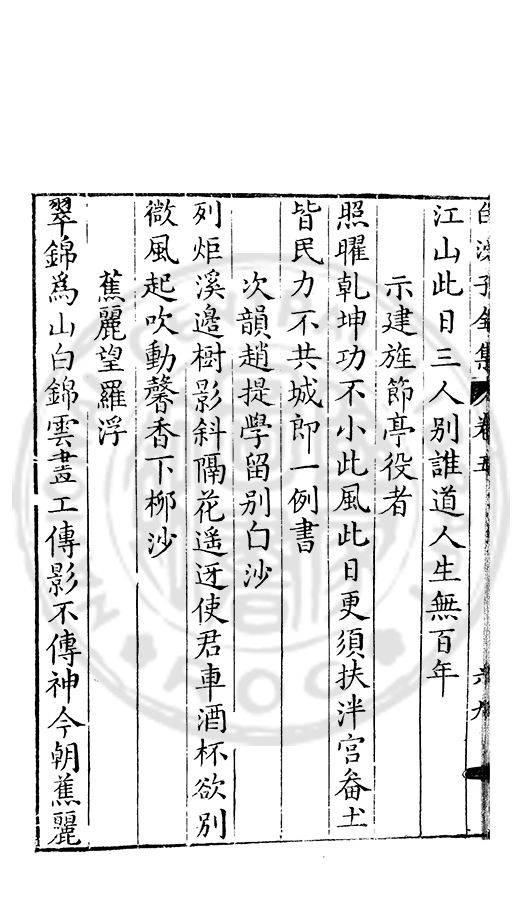 白沙子全集 卷五 六九
江山此日三人别誰道人生無百年
示建旌節亭役者
照曜乾坤功不小此風此日更須扶泮宫畚土
皆民力不共城郎一例書
次韻趙提學留别白沙
列炬溪邊樹影斜隔花遥迓使君車酒杯欲别
微風起吹動馨香下柳沙
蕉麗望羅浮
翠錦為山白錦雲畫工傳影不傳神今朝蕉麗